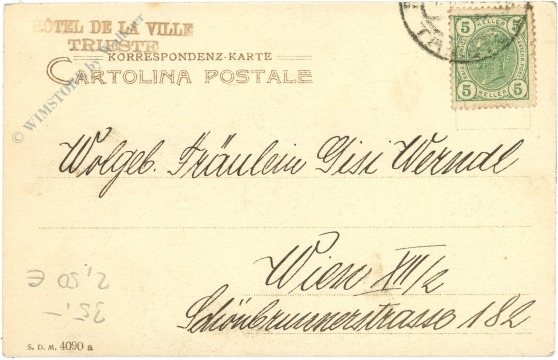 HÔTEL DE LA VILLE
TRIESTE
KORRESPONDENZ-KARTE
CARTOLINA POSTALE
© WIMSTORE by Wallner
5 5
5 HELLER 5
Wolgeb. Fräulein Gisi Werndl
Wien XII/2
Schönbrunnerstrasse 182
2,50 €
35,-
S. D. M. 4090 a